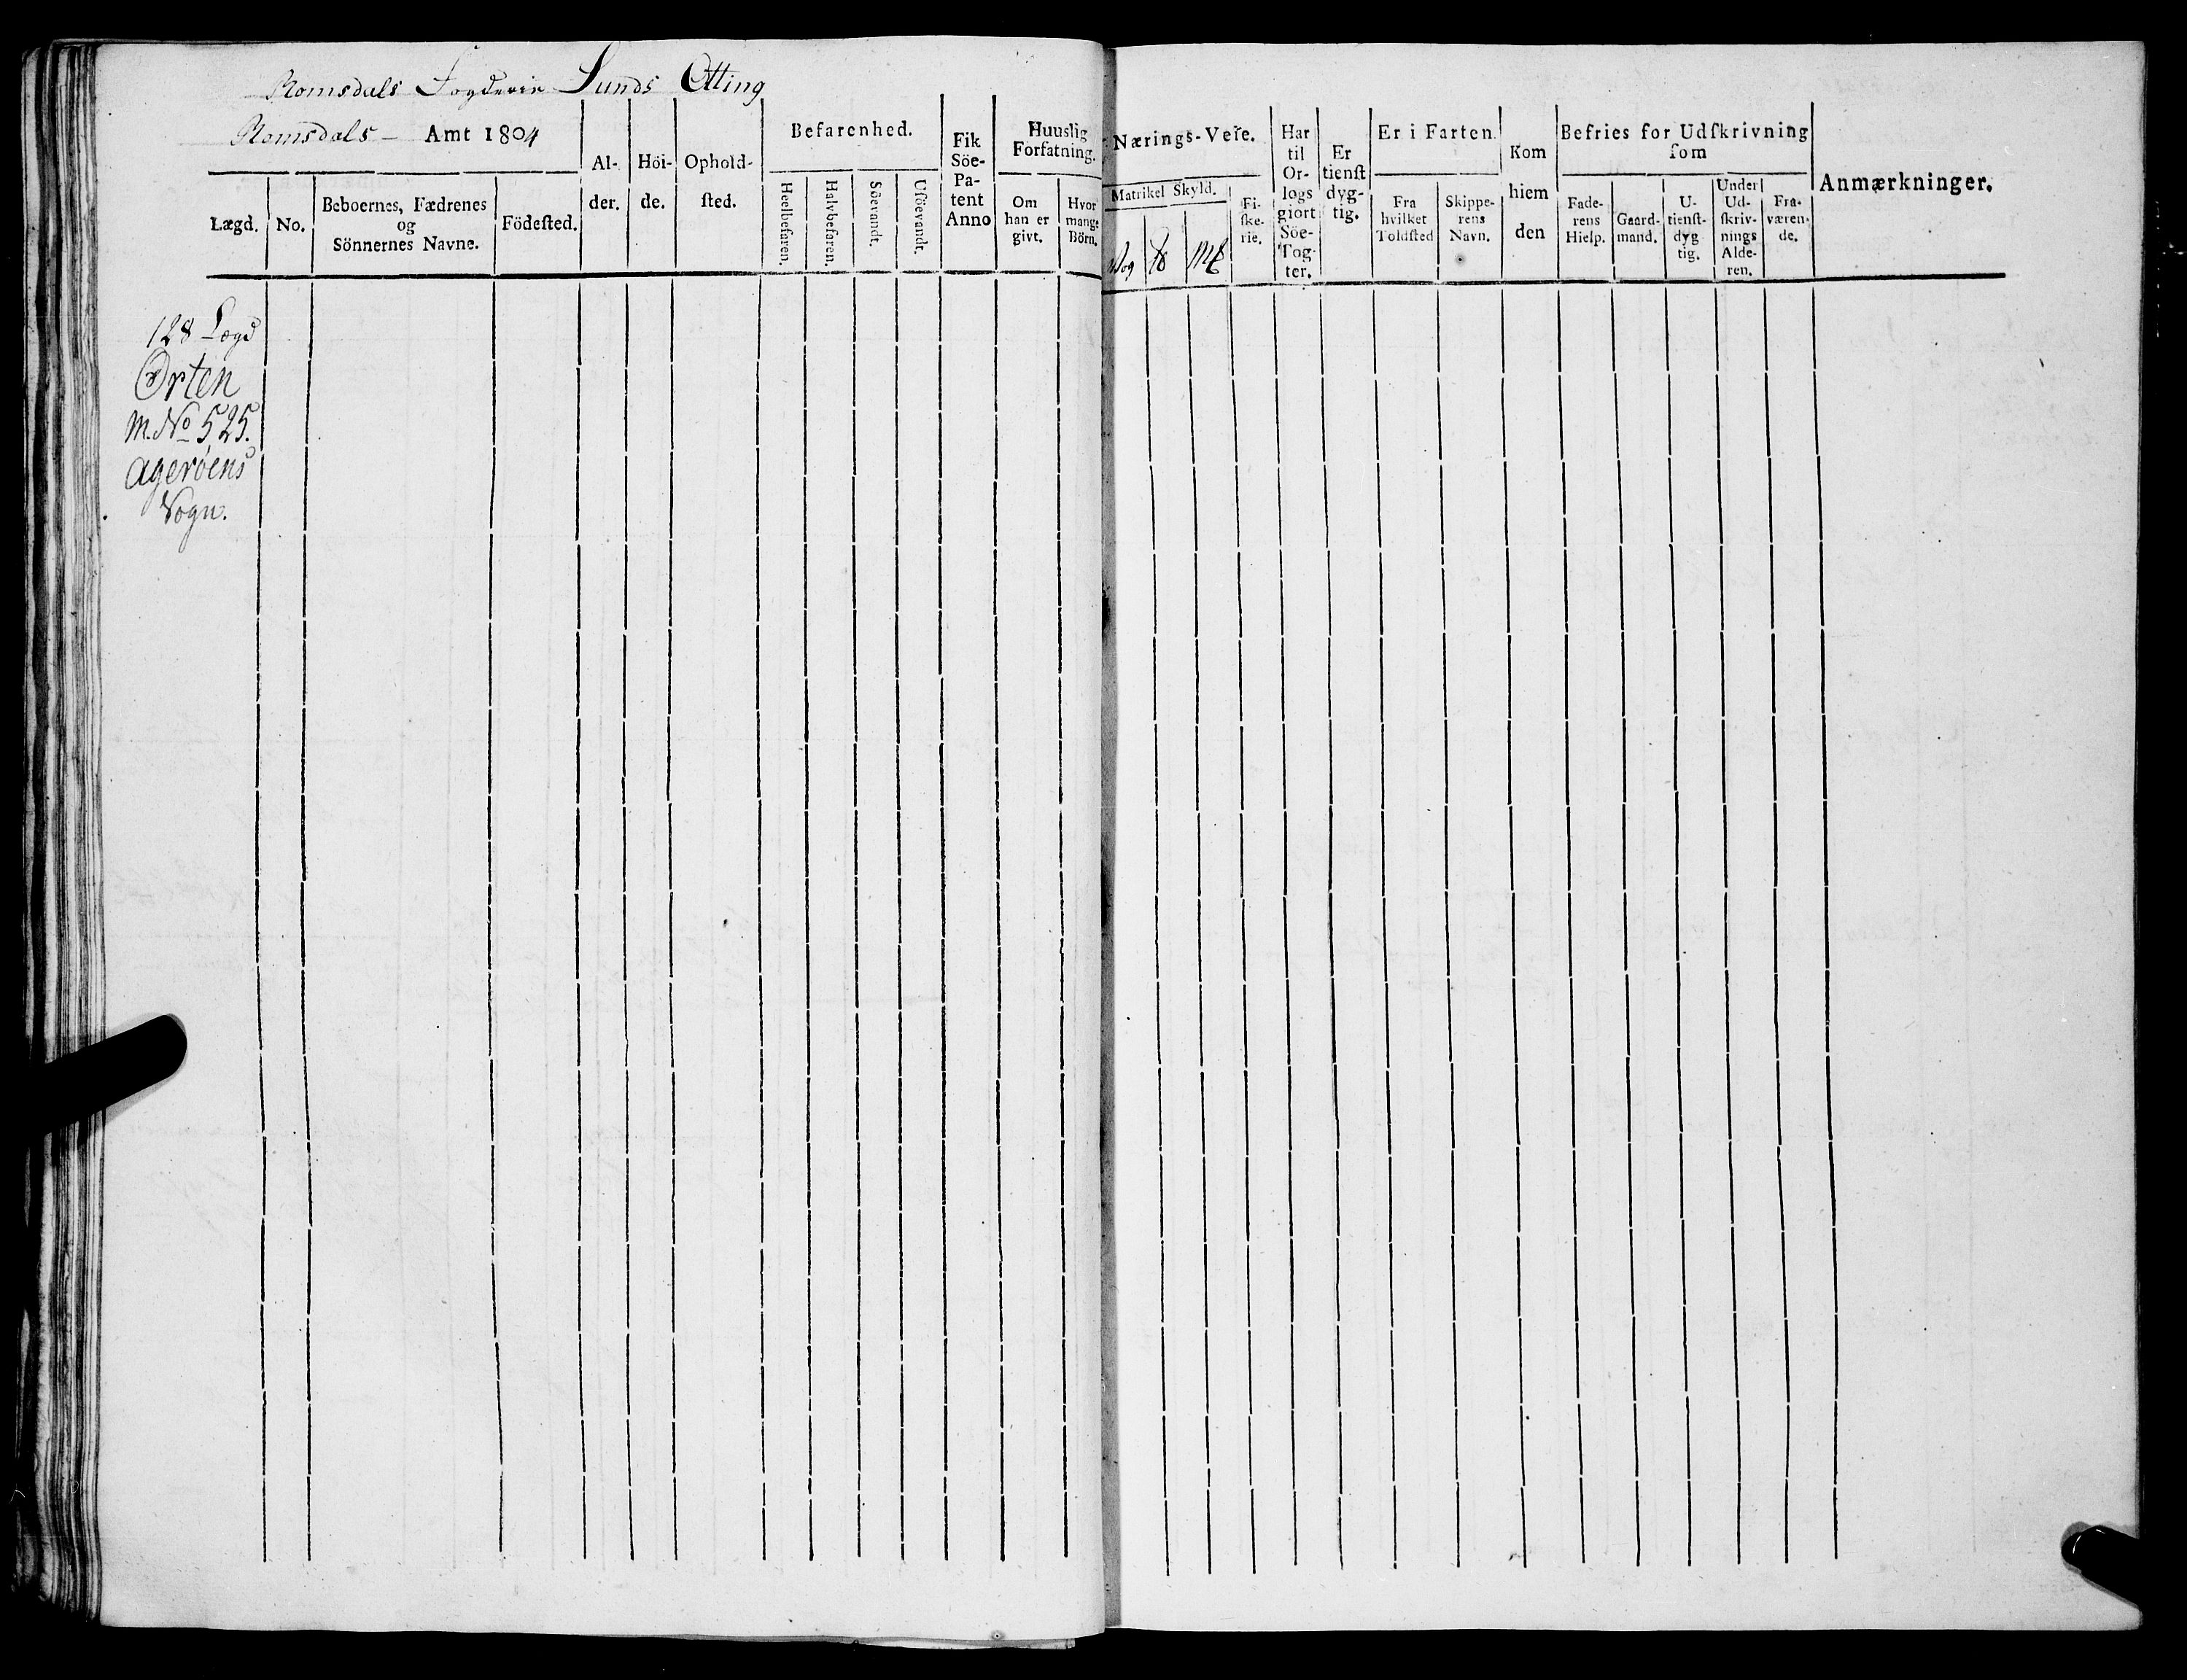 Romsdals Fogderie Sunds Otting
Romsdals – Amt 1804
Lægd.
No.
Beboernes, Fædrenes
og
Sönnernes Navne.
Födeſted.
Al-
der.
Höi-
de.
Ophold-
ſted.
Befarenhed.
Heelbefaren.
Halvbefaren.
Söevandt.
Uſöevandt.
Fik
Söe-
Pa-
tent
Anno
Huuslig
Forfatning.
Om
han er
givt.
Hvor
mange
Börn.
Nærings-Veie.
Matrikel Skyld.
Vog
℔
Mk
Fi-
ſke-
rie.
Har
til
Or-
logs
giort
Söe-
Tog-
ter.
Er
tienſt
dyg-
tig.
Er i Farten.
Fra
hvilket
Toldſted
Skippe-
rens
Navn.
Kom
hiem
den
Befries for Udſkrivning
ſom
Fade-
rens
Hielp.
Gaard-
mand.
U-
tienſt-
dyg
tig.
Under
Ud-
ſkriv-
nings
Alde-
ren.
Fra-
væren-
de.
Anmærkninger.
128 Lægd
Orten
M. No 525.
Ageröens
Sogn.